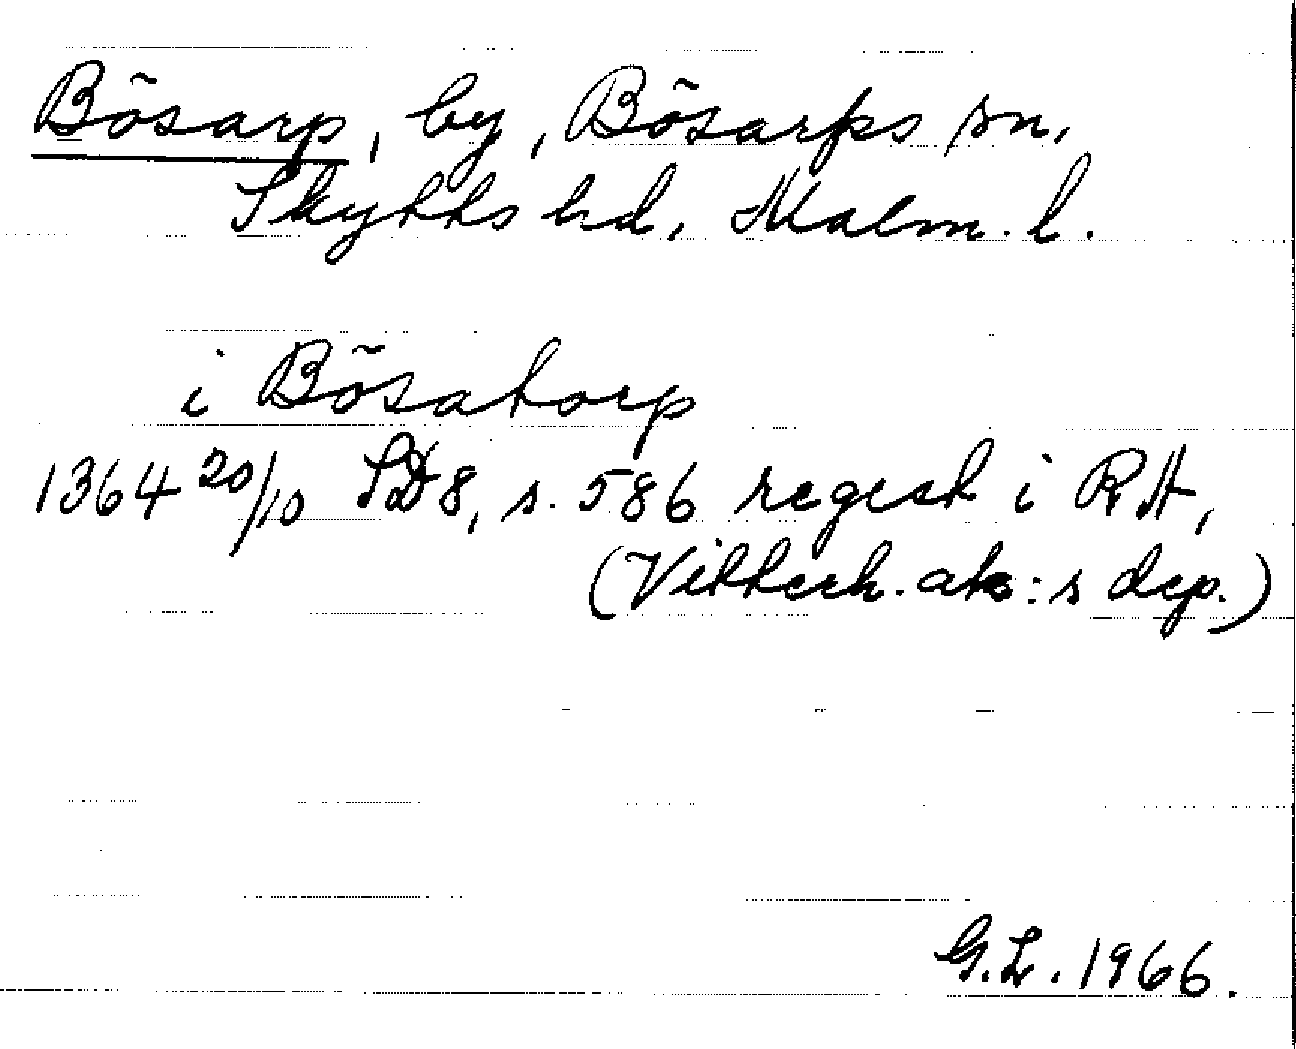 Bösarp, by, Bösarps sn,
Skytts hd, Malm. l.
i Bösatorp
1364 20/10 SD8, s. 586 regest i RA,
(Vitterh. ak:s dep.)
G.L. 1966.